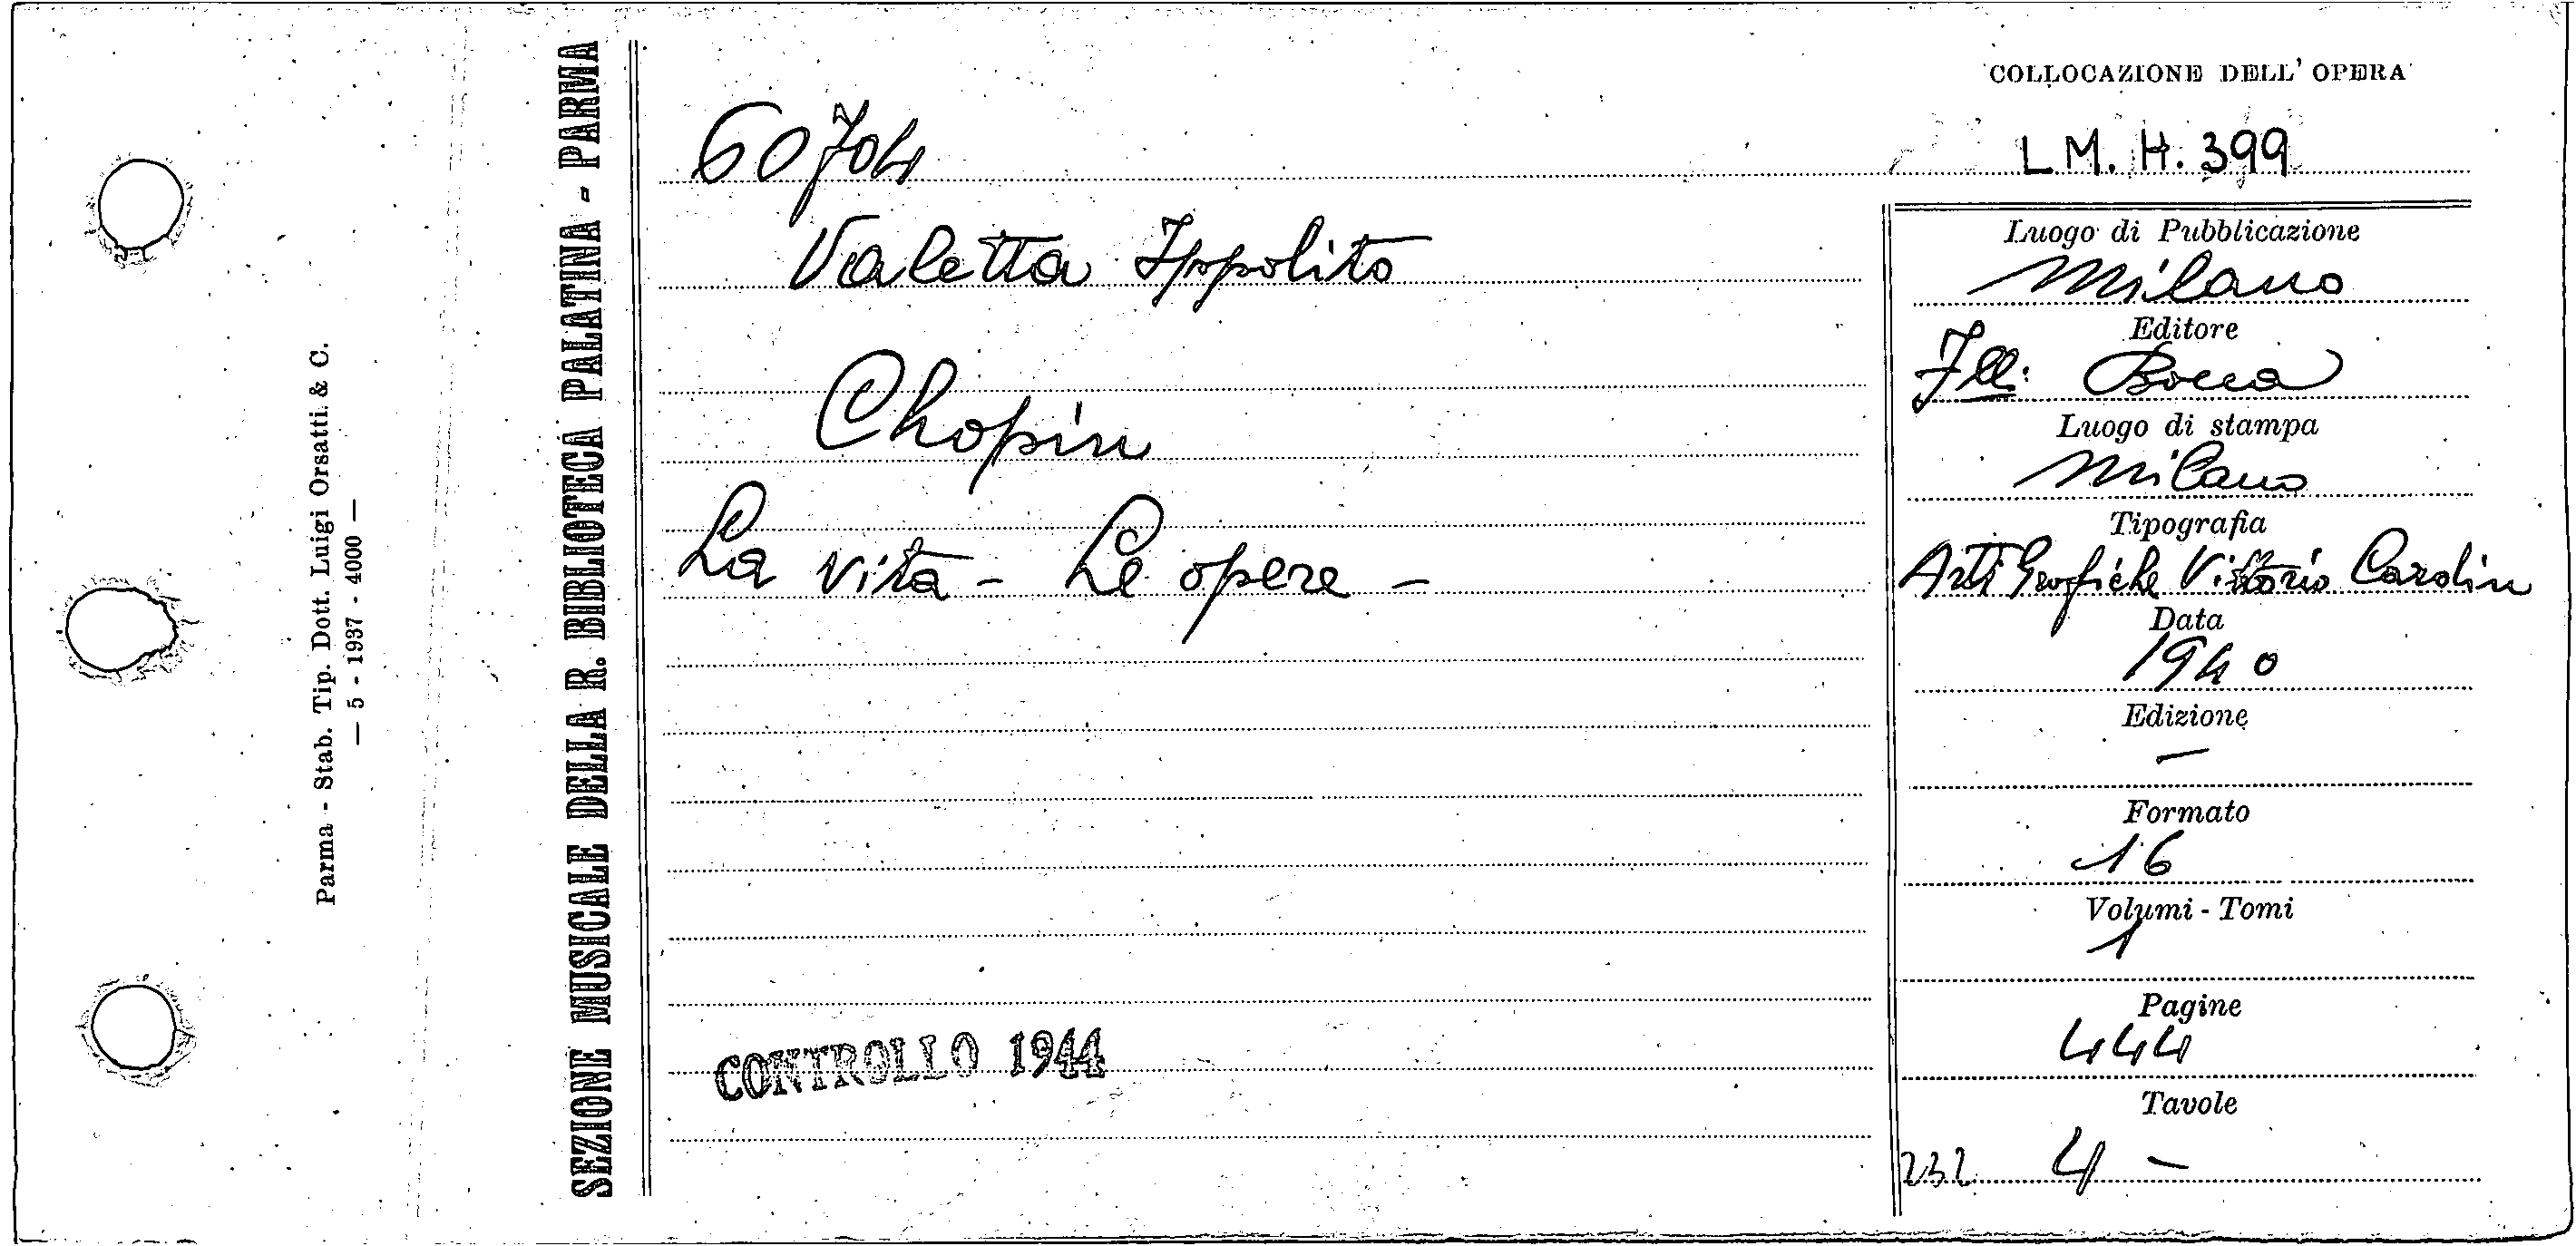 Parma - Stab. Tip. Dott. Luigi Orsatti & C.
— 5 - 1937 - 4000 —
SEZIONE MUSICALE DELLA R. BIBLIOTECA PALATINA - PARMA
COLLOCAZIONE DELL' OPERA
60704
L M. H. 399
Valetta Ippolito
Chopin
La vita - Le opere -
CONTROLLO 1944
Luogo di Pubblicazione
Milano
Editore
Flli: Bocca
Luogo di stampa
Milano
Tipografia
Arti Grafiche Vittorio Cardin
Data
1940
Edizione
—
Formato
16
Volumi - Tomi
1
Pagine
444
Tavole
232 4 -